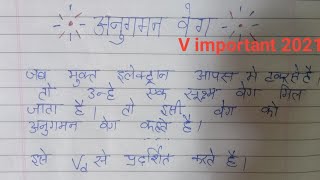 अनुगमन वेग
V important 2021
जब मुक्त इलेक्ट्रान आपस मे टकराते है
तो उन्हे एक सूक्ष्म वेग मिल
जाता है। तो इसी वेग को
अनुगमन वेग कहते है।
इसे Vd से प्रदर्शित करते है।